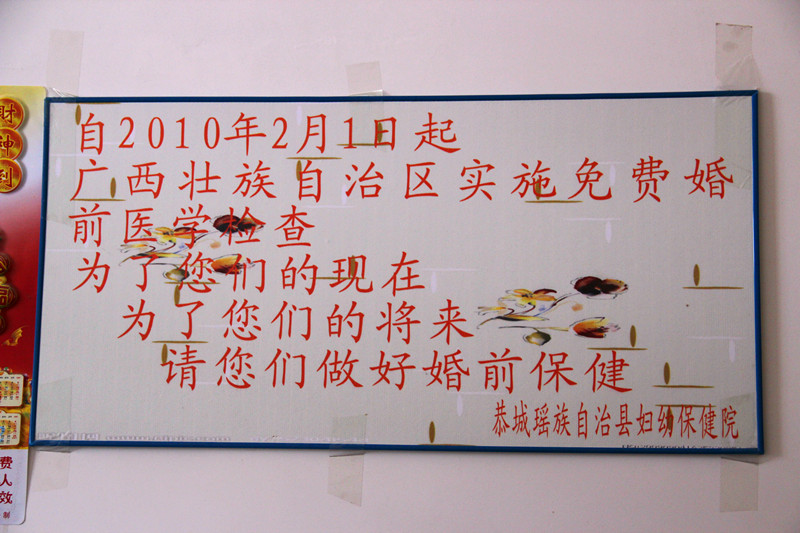 自2010年2月1日起
广西壮族自治区实施免费婚
前医学检查
为了您们的现在
为了您们的将来
请您们做好婚前保健
恭城瑶族自治县妇幼保健院
财
神
到
费
人
效
制